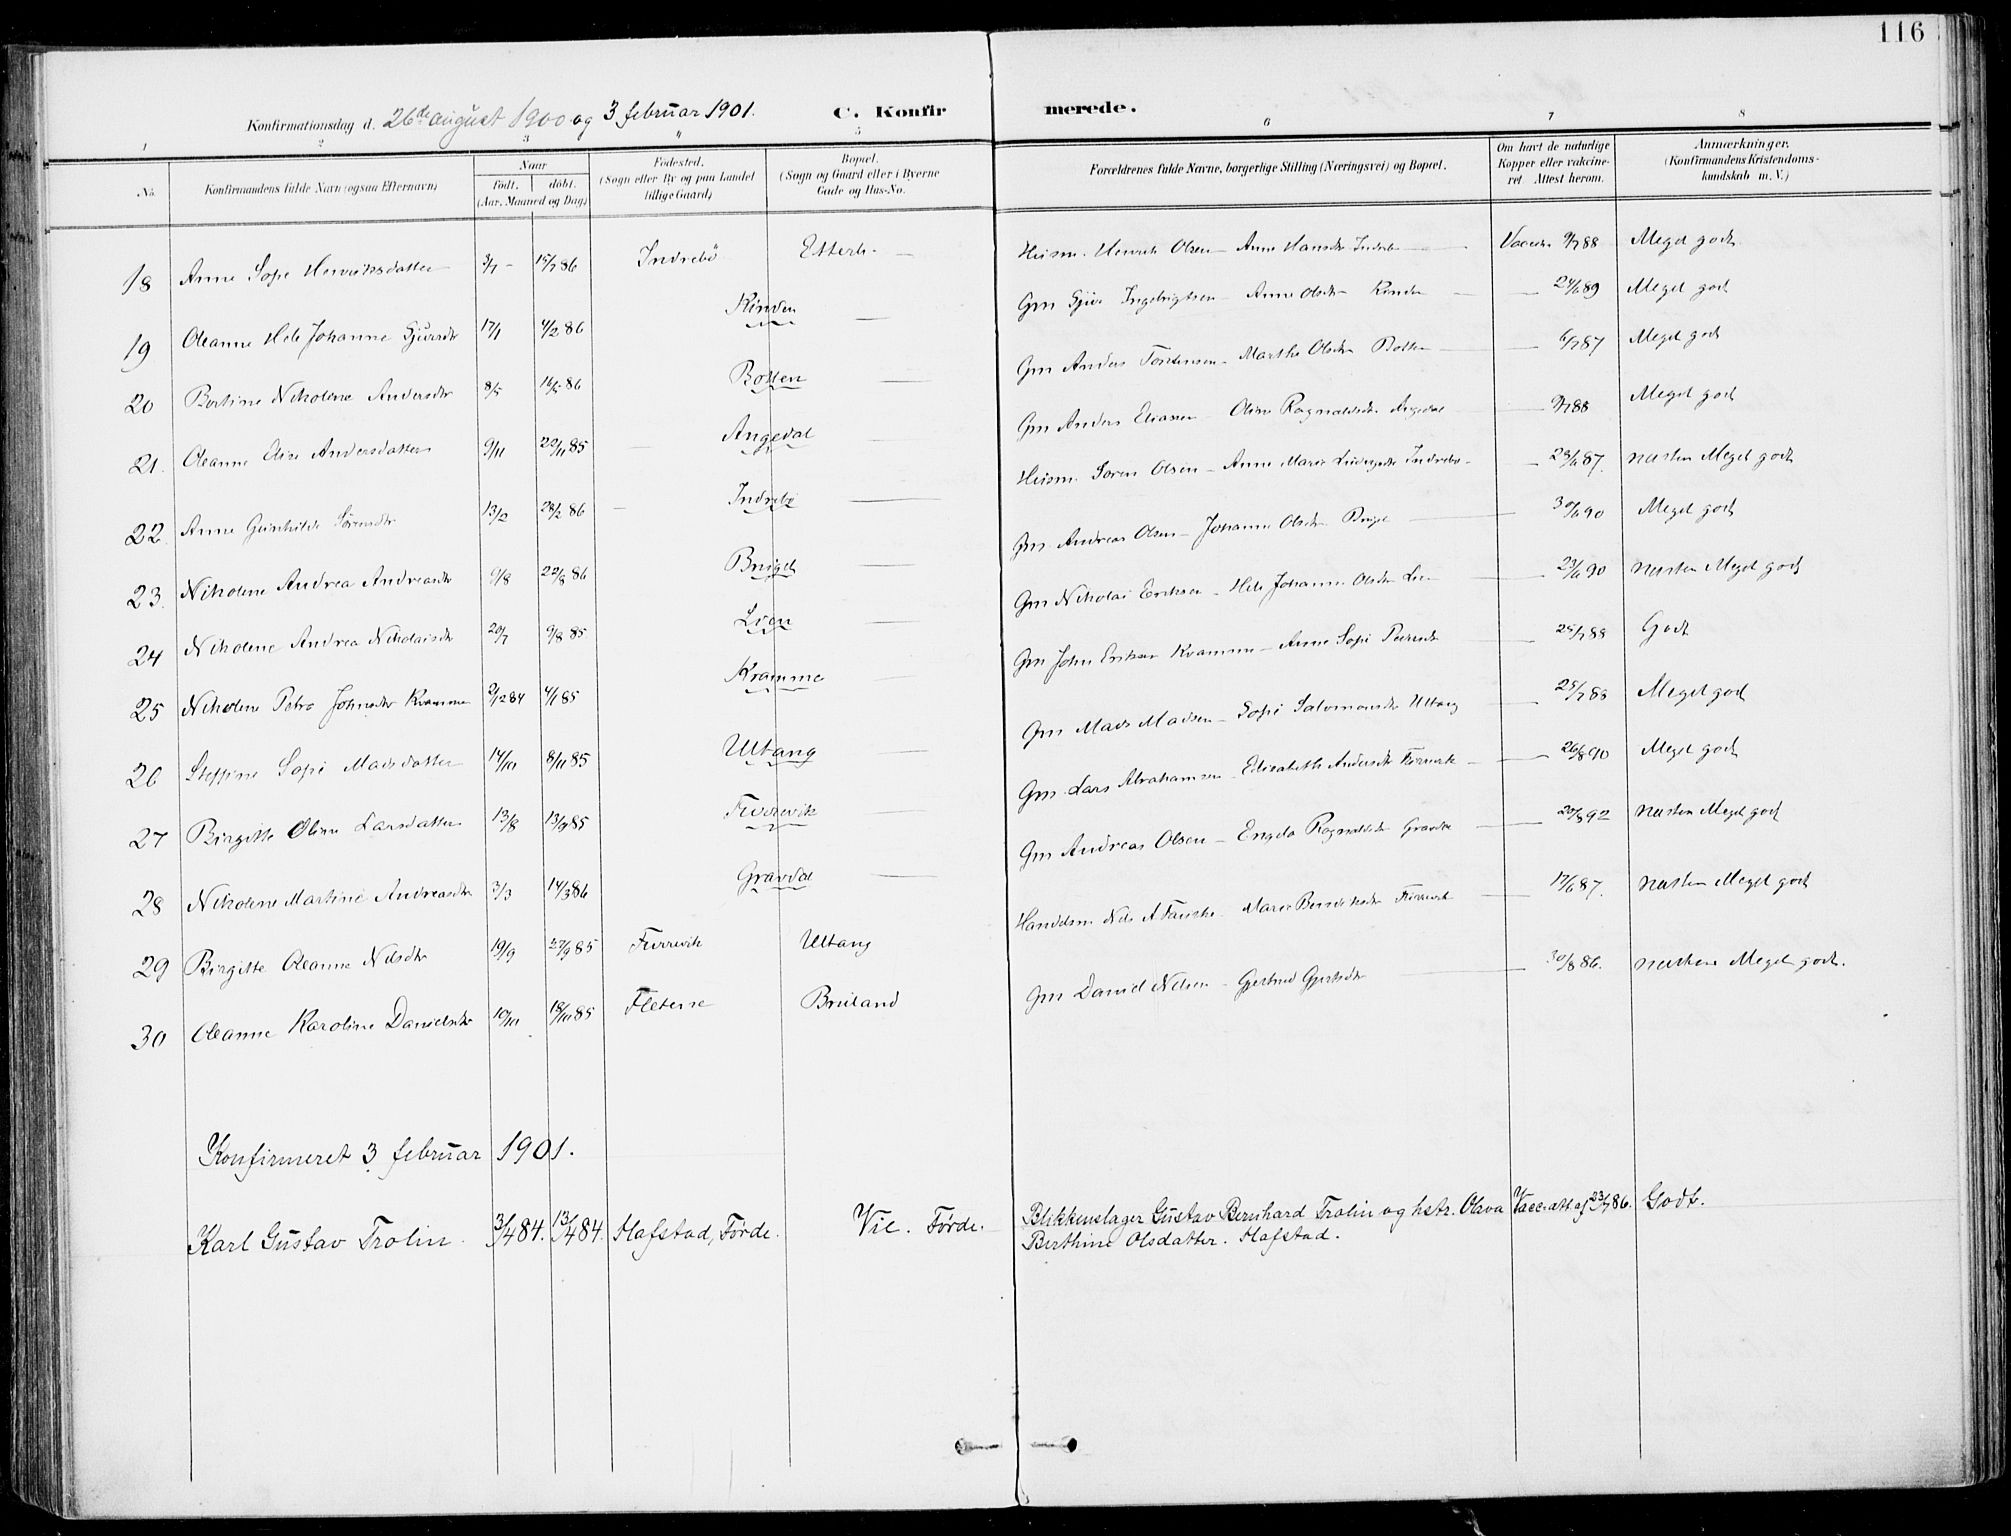 116
Konfirmationsdag d. 26de august 1900 og 3 februar 1901. C. Konfirmerede.
1 2 3 " 5 6 7 8
No. Konfirmandens fulde Navn (ogsaa Efternavn) Naar født. døbt. (Aar, Maaned og Dag) Fødested. (Sogn eller By og paa Landet tillige Gaard) Bopæl. (Sogn og Gaard eller i Byerne Gade og Hus-No. Forældrenes fulde Navne, borgerlige Stilling (Næringsvei) og Bopæl. Om havt de naturlige Kopper eller vakcineret. Attest herom. Anmærkninger. (Konfirmandens Kristendomskundskab m. V.)
18 Anne Sofie Henriksdatter 3/7 - 15/7 86 Indrebö Husm. Henrik Olsen - Anne Hansdtr Indreb Vaccin 9/7 88 Meget godt
19 Oleanne Johanne 17/1 4/2 86 Rinden Gm Ingebrigtsen - Anne Olsdtr Rinden 24/6 89 Meget godt
20 Bertine Nikoline Andersdtr 8/5 16/5 86 Botten Gm Anders - Marthe Olsdtr Botten 6/7 87 Meget godt
21. Oleanne Elise Andersdatter 9/11 22/11 85 Angedal Gm Anders Eliassen - Oline Ragnaldsdtr Angedal 9/7 88 Meget godt
22. Anne Gunhilde Sörensdtr 13/2 28/2 86 Indrebö Husm. Sören Olsen - Anne Marie Indrebö 28/6 87. næsten Meget godt
23. Nikoline Andrea Andreasdtr 9/8 22/8 86 Bruget Gm Andreas Olsen - Johanne Olsdtr 30/6 90 Meget godt
24 Nikoline Andrea Nikolaisdtr 20/7 9/8 85 Lien Gm Nikolai Eriksen - Johanne Olsdtr Lien 23/6 90 næsten Meget godt
25 Nikoline Petra Johnsdtr Kvamme 2/12 84 4/1 85 Kvamme Gm John Eriksen Kvamme - Anne Sofie Peersdtr 25/7 88 Godt
26 Steffine Sofie Madsdatter 14/10 8/11 85 Ultang Gm Mads Madsen - Sofie Salomonsdtr Ultang 25/7 88 Meget godt
27 Birgitte Oline Larsdatter 13/8 13/9 85 Furrevik Gm Lars Abrahamsen - Elisabeth Andersdtr Furrevik 26/8 90 Meget godt
28 Nikoline Martine Andreasdtr 3/3 14/3 86 Gravdal Gm Andreas Olsen - Ragnaldsdtr Gravdal 20/8 92 næsten Meget godt
29 Birgitte Oleanne Nilsdtr 19/9 27/9 85 Furrevik Ultang Handelsm Nils A - Marie Furrevik 17/6 87. næsten Meget godt
30 Oleanne Karoline Danielsdtr 10/10 18/10 85 Fleterne Bruland Gm Daniel Nilsen - Gjertrud 30/8 86. næsten Meget godt.
Konfirmeret 3 februar 1901.
Karl Gustav Trolin. 3/4 84. 13/4 84. Hafstad, Førde. Vie. Førde. Blikkenslager Gustav Bernhard Trolin og hstr. Olava Vacc. att af 23/7 86. Godt.
Berthine Olsdatter. Hafstad.